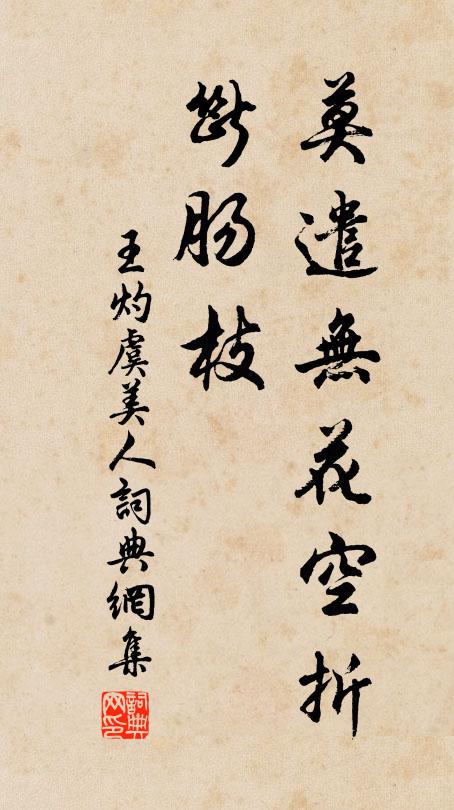 莫遣無花空折
斷腸枝
王灼虞美人詞典網集
詞典
网印